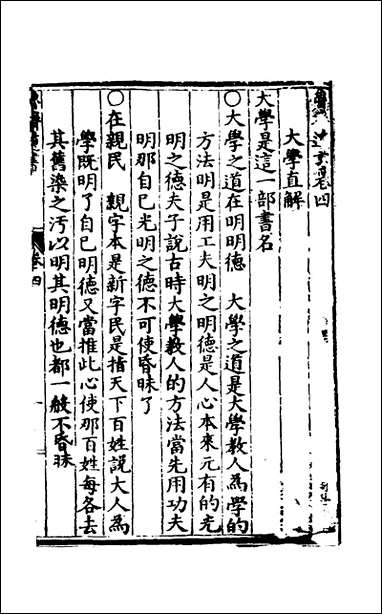 魯齋遺書卷四
大學直解
大學是這一部書名
○大學之道在明明德　大學之道是大學教人為學的
方法明是用工夫明之明德是人心本來元有的光
明之德夫子說古時大學教人的方法當先用功夫
明那自己光明之德不可使昏昧了
○在親民　親字本是新字民是指天下百姓說大人為
學既明了自己明德又當推此心使那百姓每各去
其舊染之汚以明其明德也都一般不昏昧
卷四